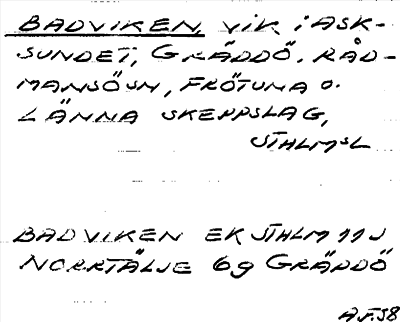 BADVIKEN, VIK I ASK-
SUNDET, GRÄDDÖ, RÅD-
MANSÖ SN, FRÖTUNA O.
LÄNNA SKEPPSLAG,
STHLMS L
BADVIKEN EK STHLM 11 J
NORRTÄLJE 6g GRÄDDÖ
A.F. 58